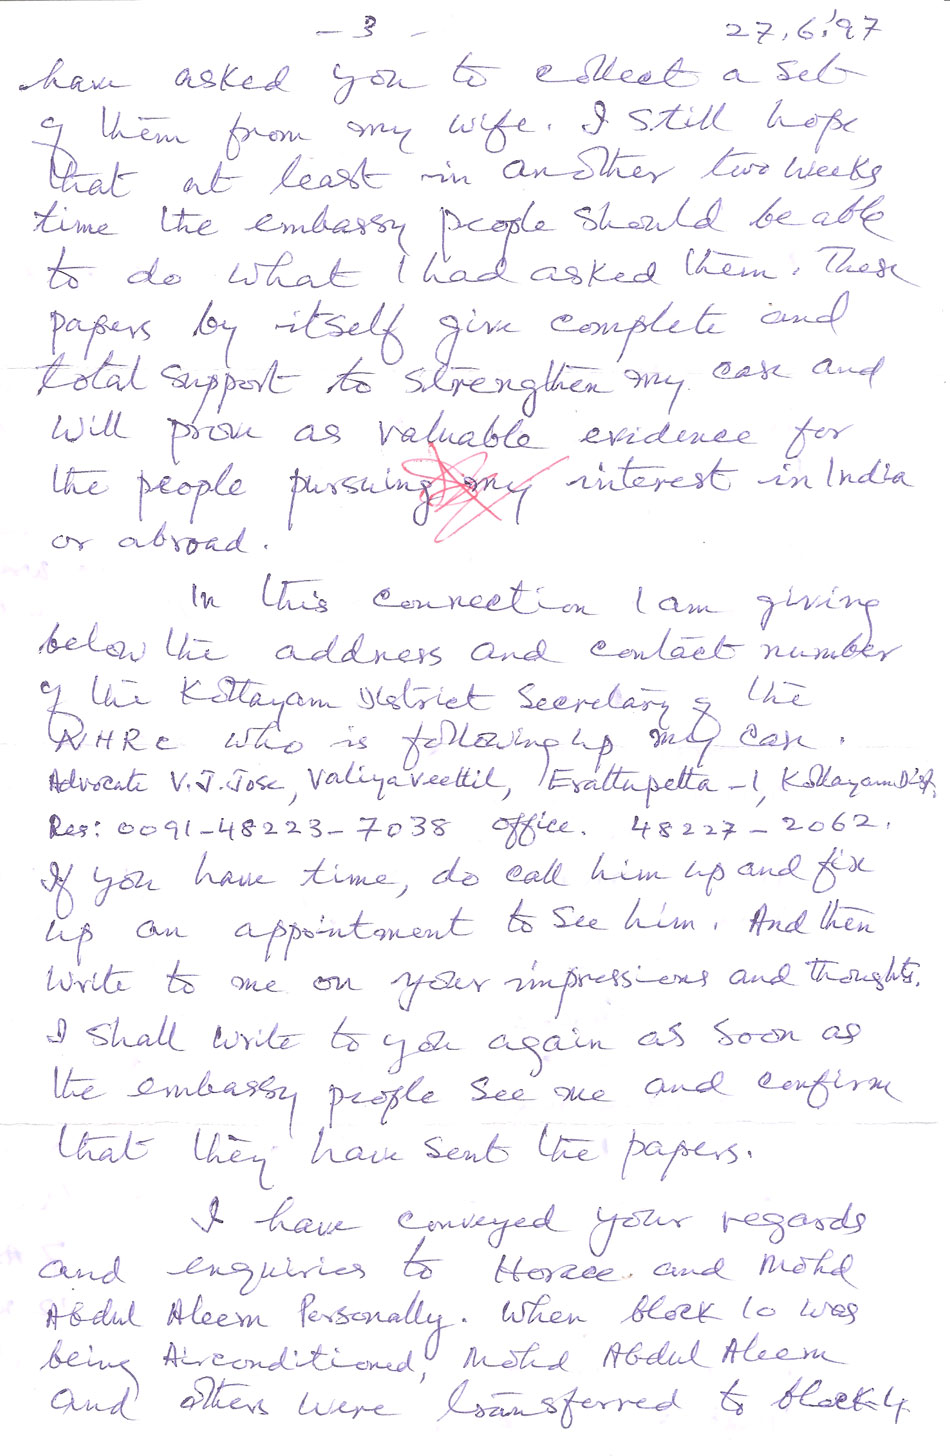 - 3 -
27.6.'97
have asked you to collect a set
of them from my wife. I still hope
that at least in another two weeks
time the embassy people should be able
to do what I had asked them. These
papers by itself give complete and
total support to strengthen my case and
will prove as valuable evidence for
the people pursuing my interest in India
or abroad.
In this connection I am giving
below the address and contact number
of the Kottayam District Secretary of the
NHRC who is following up my case.
Advocate V.J. Jose, Valiyaveettil, Erattupetta -1, Kottayam Dist,
Res: 0091-48223-7038 office. 48227-2062.
If you have time, do call him up and fix
up an appointment to see him. And then
write to me on your impressions and thoughts.
I shall write to you again as soon as
the embassy people see me and confirm
that they have sent the papers.
I have conveyed your regards
and enquiries to Horace and Mohd
Abdul Aleem Personally. When block 10 was
being Airconditioned, Mohd Abdul Aleem
and others were transferred to block-4.